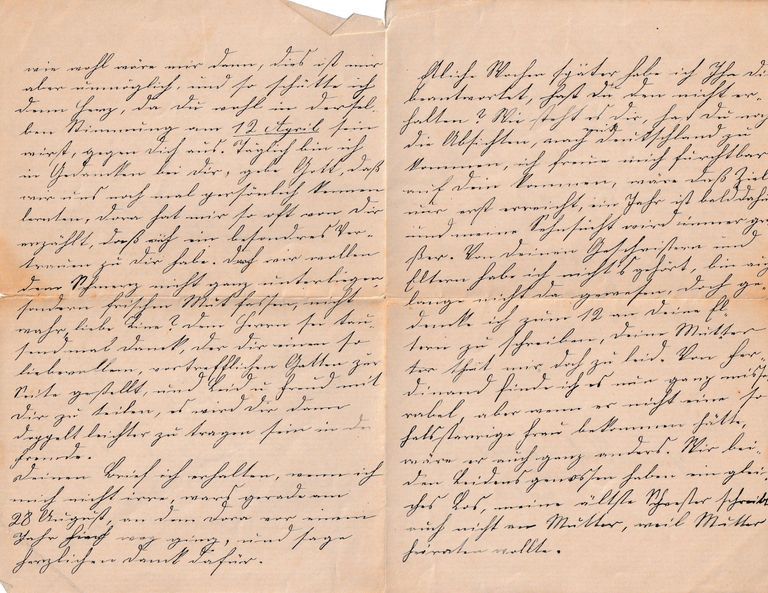 wie wohl wäre mir dann, dies ist mir
aber unmöglich, und so schütte ich
denn Herz, da Du wohl in dersel-
ben Stimmung am 12 April sein
wirst, gegen Dich aus. Täglich bin ich
in Gedanken bei Dir, gebe Gott, daß
wir uns noch mal persönlich kennen
lernten, Dora hat mir so oft von Dir
erzählt, daß ich ein besondres Ver-
trauen zu Dir habe. Doch wir wollen
dem Schmerz nicht ganz unterliegen,
sondern frischen Mut fassen, nicht
wahr, liebe Line? dem Herrn sei tau-
sendmal Dank, der dir einen so
liebevollen, vortrefflichen Gatten zur
Seite gestellt, und Leid u. Freud mit
Dir zu teilen, es wird Dir dann
doppelt leichter zu tragen sein in der
Fremde.
Deinen Brief ich erhalten, wenn ich
mich nicht irre, wars gerade am
28 August, an dem Dora vor einem
Jahr weg ging, und sage
herzlichen Dank dafür.
Etliche Wochen später habe ich Ihn Dir
beantwortet, hast Du den nicht er-
halten? Wie steht es Dir, hast Du noch
die Absichten, nach Deutschland zu
kommen, ich freue mich furchtbar
auf Dein Kommen, wäre daß Ziel
nur erst erreicht, ein Jahr ist bald dahin
und meine Sehnsucht wird immer grö
ßer. Von Deinen Geschwistern und
Eltern hab ich nichts gehört, bin auch
lange nicht da gewesen, doch ge-
denke ich zum 12 an Deine El
tern zu schreiben, Deine Mutter
thut mir doch zu leid. Von Fer-
dinand finde ich es nun ganz mise
rabel, aber wenn er nicht eine so
halsstarrige Frau bekommen hätte,
wäre er auch ganz anders. Wir bei-
den Leidensgenossen haben ein glei-
ches Los, meine älteste Schwester schreibt
auch nicht an Mutter, weil Mutter
heiraten wollte.